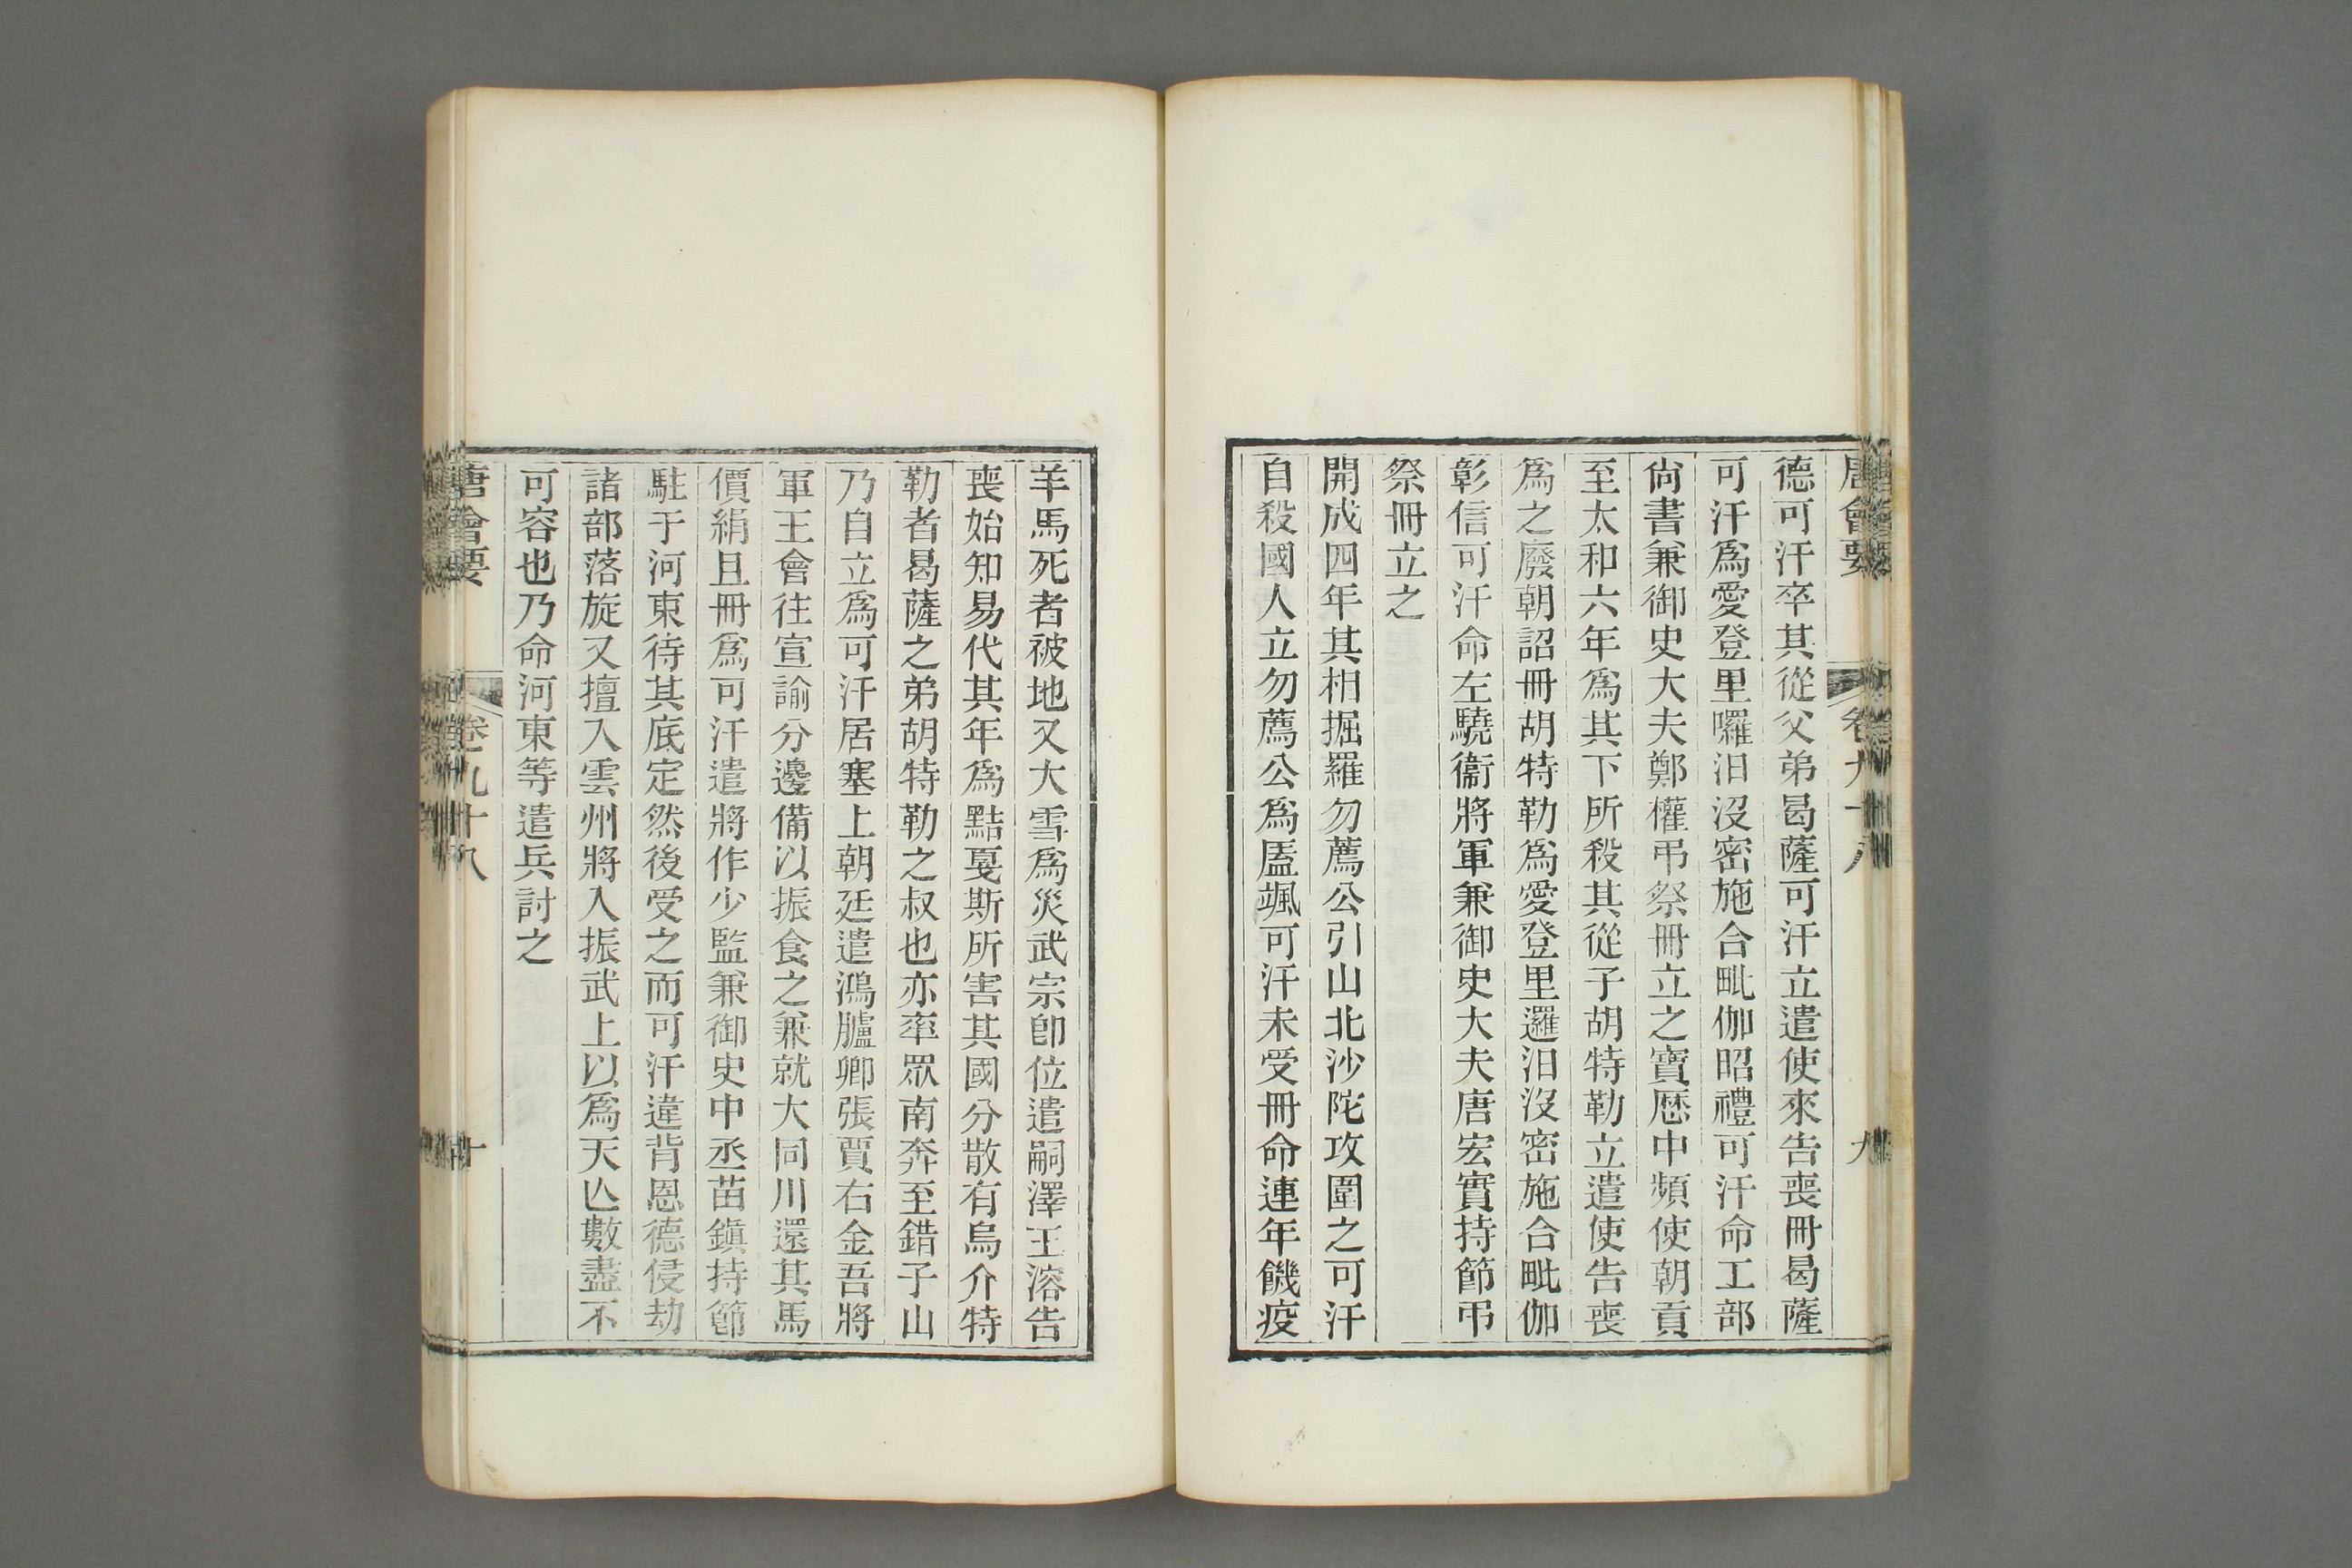 唐會要 卷九十八 九
德可汗卒其從父弟曷薩可汗立遣使來告喪冊曷薩
可汗爲愛登里囉汨沒密施合毗伽昭禮可汗命工部
尙書兼御史大夫鄭權弔祭冊立之寶歷中頻使朝貢
至太和六年爲其下所殺其從子胡特勒立遣使告喪
爲之廢朝詔冊胡特勒爲愛登里邏汨沒密施合毗伽
彰信可汗命左驍衞將軍兼御史大夫唐宏實持節弔
祭冊立之
開成四年其相掘羅勿薦公引山北沙陀攻圍之可汗
自殺國人立勿薦公爲㕎颯可汗未受冊命連年饑疫
羊馬死者被地又大雪爲災武宗卽位遣嗣澤王溶告
喪始知易代其年爲黠戛斯所害其國分散有烏介特
勒者曷薩之弟胡特勒之叔也亦率眾南奔至錯子山
乃自立爲可汗居塞上朝廷遣鴻臚卿張賈右金吾將
軍王會往宣諭分邊備以振食之兼就大同川還其馬
價絹且冊爲可汗遣將作少監兼御史中丞苗鎭持節
駐于河東待其底定然後受之而可汗違背恩德侵劫
諸部落旋又擅入雲州將入振武上以爲天亾數盡不
可容也乃命河東等遣兵討之
唐會要 卷九十八 十